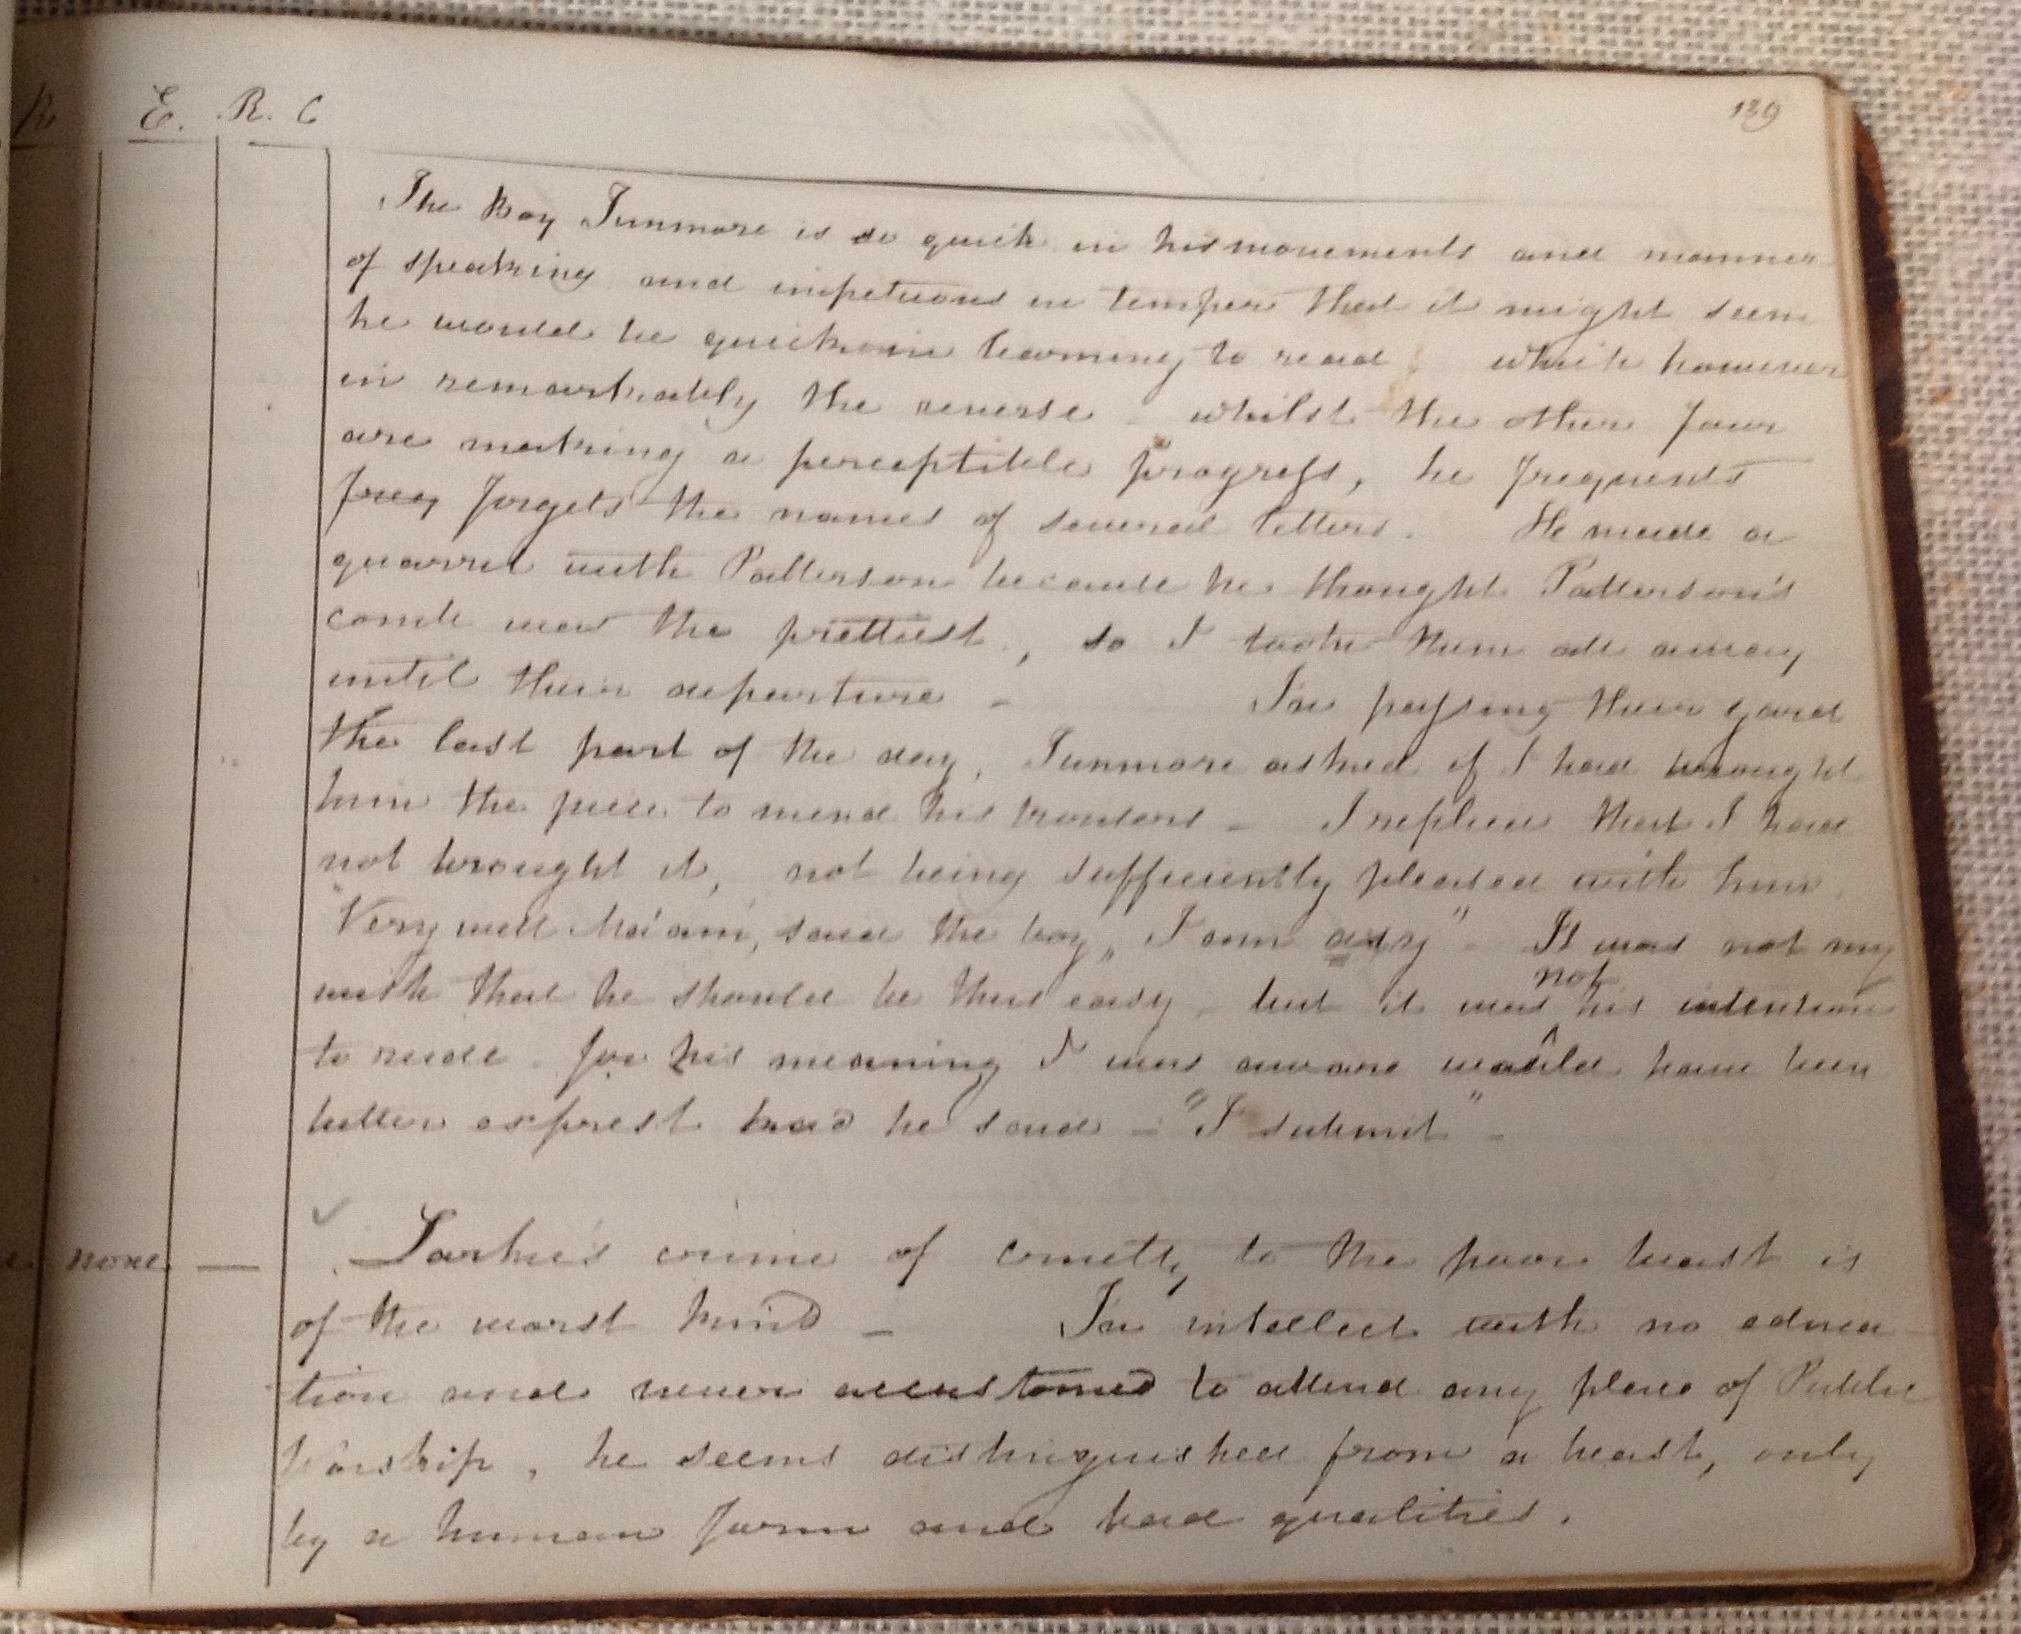 E. R. C
139
The Boy Tunmore is so quick in his movements and manner
of speaking and impetuous in temper that it might seem
he would be quick in learning to read which however
in remarkably the reverse - whilst the other four
are making a perceptible progress, he frequents
freq forgets the names of several letters. He made a
quarrel with Patterson because he thought Patterson's
comb was the prettiest, so I took them all away
until their departure - In passing their yard
the last part of the day, Tunmore asked if I had brought
him the piece to mend his trousers - I replied that I had
not brought it, not being sufficiently pleased with him.
"Very well Ma'am, said the boy, I am easy" - It was not my
wish that he should be thus easy - but it was not his intention
to rude - for his meaning I was aware would have been
better exprest had he said - "I submit" -
e none — Larke's crime of cruelty to the poor beast is
of the worst kind - In intellect with no educa
tion and never accustomed to attend any place of Public
Worship, he seems distinguished from a beast, only
by a human form and bad qualities.